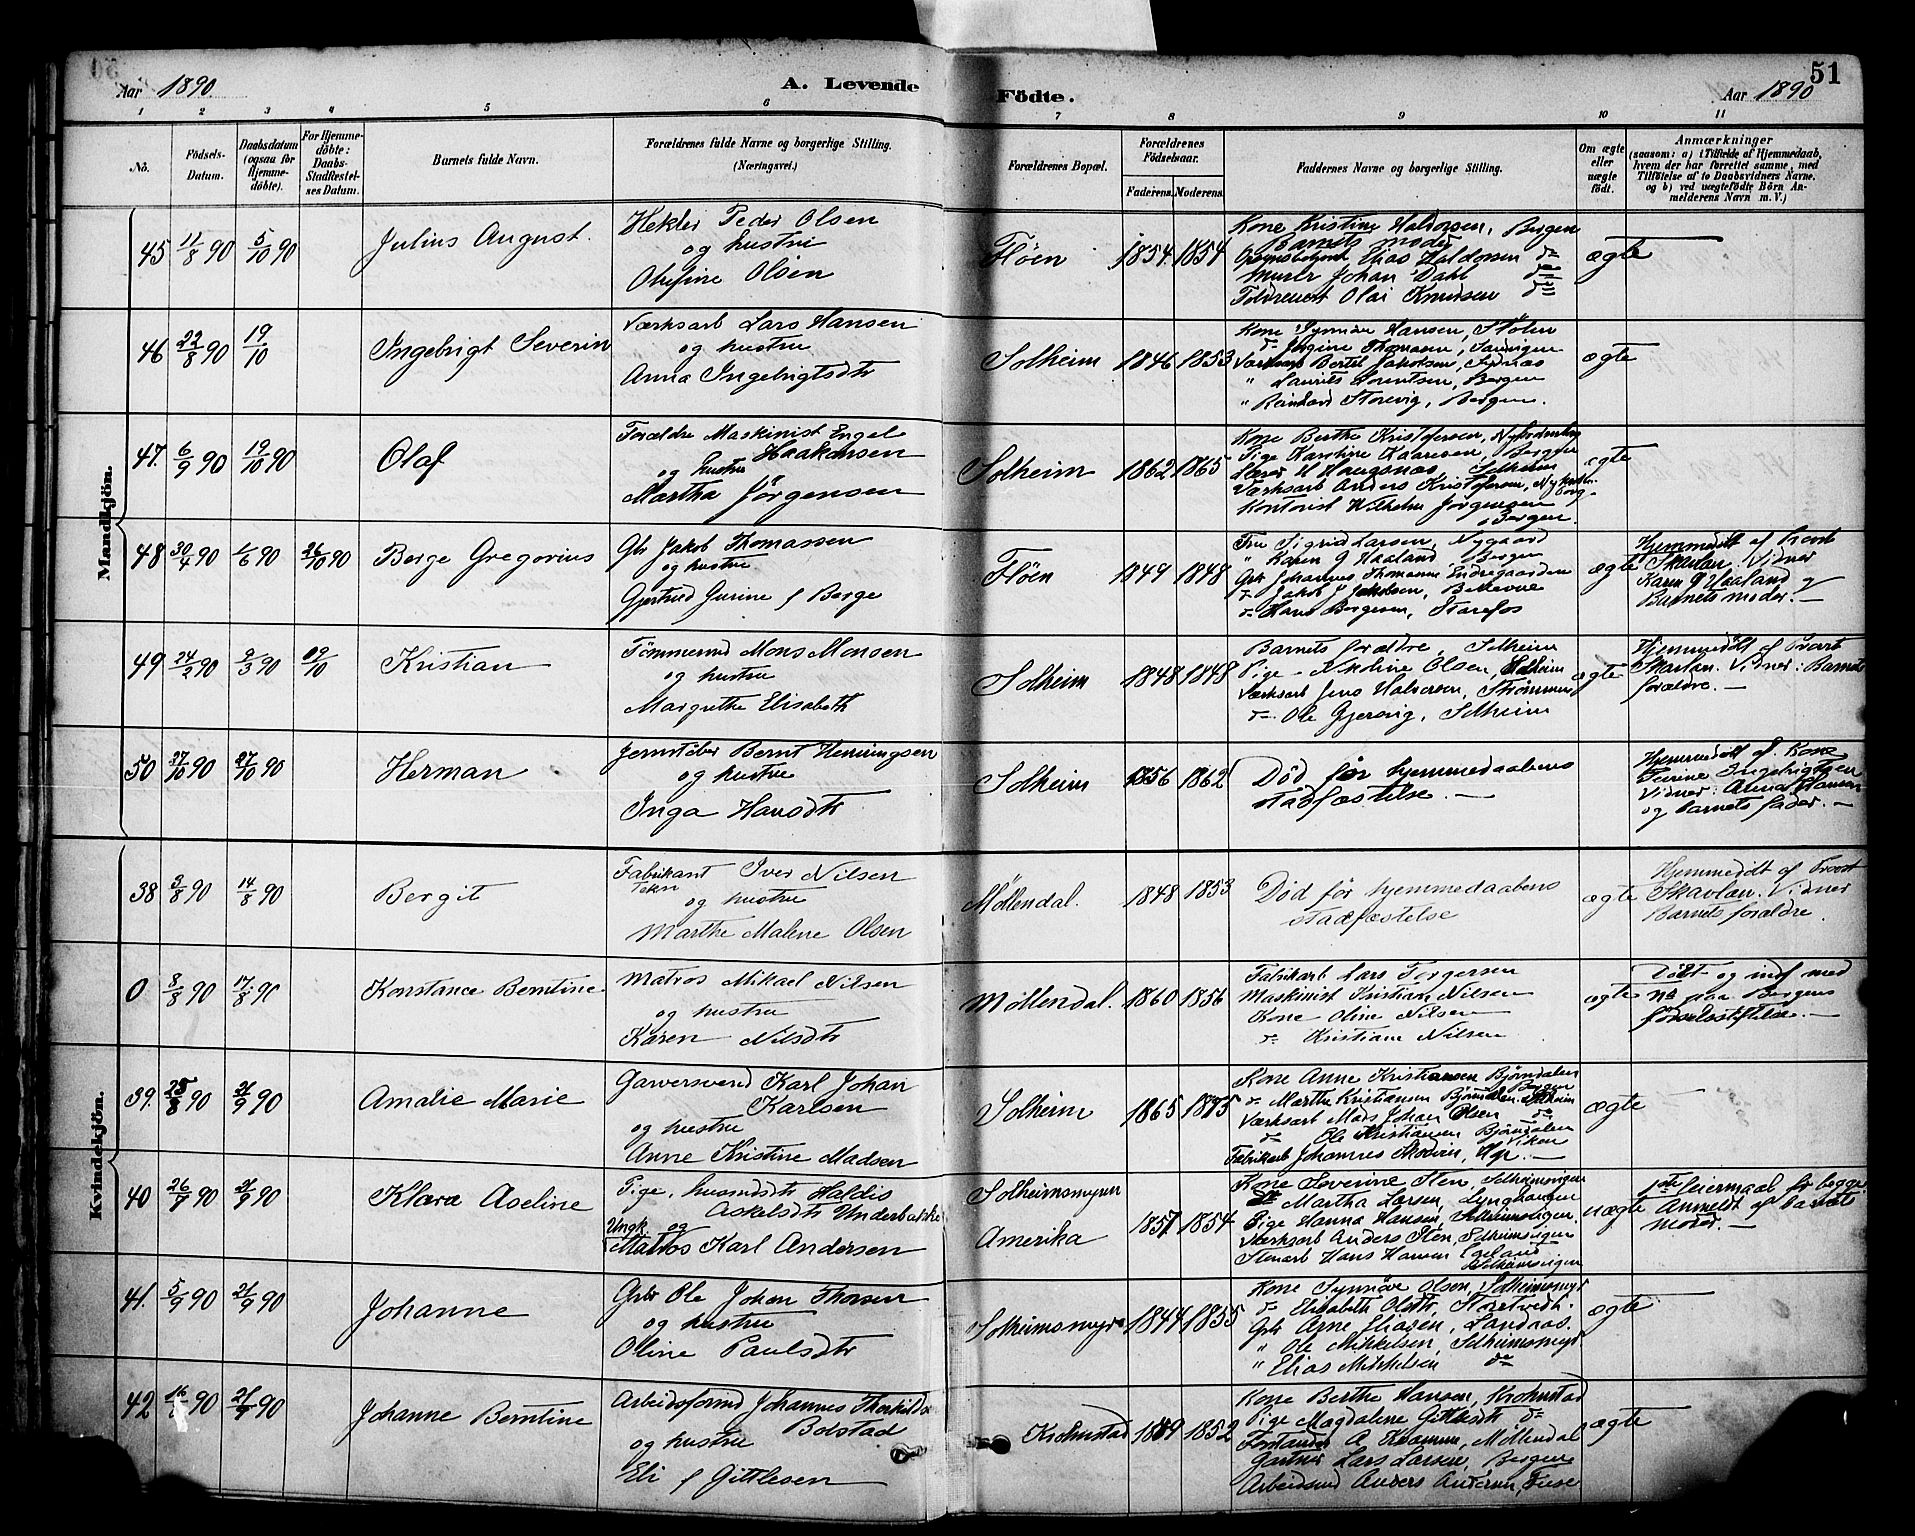 Aar 1890. A. Levende Födte. Aar 1890 51
1 2 3 4 5 6 7 8 9 10 11
No. Födsels-Datum. Daabsdatum (ogsaa for Hjemmedöbte). For Hjemmedöbte: Daabs-Stadfæstelses Datum. Barnets fulde Navn. Forældrenes fulde Navne og borgerlige Stilling. (Næringsvei.) Forældrenes Bopæl. Forældrenes Födselsaar. Faderens. Moderens. Faddernes Navne og borgerlige Stilling. Om ægte eller uægte födt. Anmærkninger (saasom: a) i Tilfælde af Hjemmedaab, hvem der har forrettet samme, med Tilföielse af to Daabsvidners Navne, og b) ved uægtefödte Börn Anmelderens Navn m. V.)
Mandkjön.
45 11/8 90 5/10 90 Julius August.
Hekler Peder Olsen
og hustru
Olufine Olsen
Fløen 1854. 1854
Kone Kristine Haldorsen, Bergen
Barnets moder
Elias Haldorsen do
Murer Johan Dahl do
Olai Knudsen do
ægte
46 22/8 90 19/10 Ingebrigt Severin
Værksarb Lars Hansen
og hustru
Anna Ingebrigtsdtr
Solheim 1846 1853
Kone Synnøve Hansen, Stølen
do Jørgine Thomasen,
Værksarb Bertel Jakobsen,
" Laurits Lorentsen, Bergen
" Reinhard Storevig, Bergen.
ægte
47. 6/9 90 19/10 90 Olaf
Forældre Maskinist Engel
Haakonsen
og hustru
Martha Jörgensen
Solheim 1862 1865
Kone Berthe Kristofersen,
Pige Karoline Kaaresen, Bergen
H Haugsnæs, Solheim
Værksarb Anders Kristofersen,
Kontorist Wilhelm Jorgensen
Bergen.
ægte
48 30/4 90 1/6 90 26/10 90 Berge Gregorius
Gbr Jakob Thomassen
og hustru
Gjertrud Gurine f Berge
Fløen 1849 1848
Fru Sigrid Larsen, Nygaard
" Karen G Haaland, Bergen
Gbr Johannes Thomassen Endregaarden
do Jakob J Jakobsen, Bellevue
do Hans Bergesen, Storefos
ægte
Hjemmedöbt af Provst
Skavlan, Vidner
Karen G Haaland og
Barnets moder. —
49 24/2 90 9/3 90 19/10 Kristian
Tömmermd Mons Monsen
og hustru
Margrethe Elisabeth
Solheim 1848 1848
Barnets forældre, Solheim
Pige Nikoline Olsen, Solheim
Værksarb Jens Halvorsen, Strømmen
do Ole Gjervig, Solheim
ægte
Hjemmedöbt af Provst
Skavlan. Vidner: Barnets
forældre. —
50 27/10 90 27/10 90 Herman
Jernstøber Bernt Henningsen
og hustru
Inga Hansdtr
Solheim 1856 1862
Død før hjemmedaabens
stadfæstelse. —
Hjemmedöbt af Kone
Ingebrigtsen
Vidner: Hansen
og barnets fader. —
Kvindekjön.
38 3/8 90 14/8 90 Bergit
Fabrikant Iver Nilsen
og hustru
Marthe Malene Olsen
Møllendal. 1848 1853
Død før hjemmedaabens
stadfæstelse
ægte
Hjemmedöbt af Provst
Skavlan. Vidner
Barnets forældre.
0 8/8 90 17/8 90 Konstance Berntine
Matros Mikael Nilsen
og hustru
Karen Nilsdtr
Møllendal. 1860 1856
Fabrikarb Lars Torgersen
Maskinist Kristian Nilsen
Kone Oline Nilsen
do Kristiane Nilsen
ægte
Döbt og indf med
No paa Bergens
fødselsstiftelse. —
39. 25/8 90 21/9 90 Amalie Marie
Garversvend Karl Johan
Karlsen
og hustru
Anne Kristine Madsen
Solheim 1865 1875
Kone Anne Kristiansen Bjørndalen
Bergen
do Marthe Kristiansen Bjørndalen Solheim
Værksarb Mads Johan Olsen do
do Ole Kristiansen Bjørndalen
Viken
Fabrikarb Johannes —
ægte
40 26/7 90 21/9 90 Klara Aseline
Pige, husmdsdtr Haldis
Askelsdtr Underbakke
Ungk. og
Matros Karl Andersen
Solheimsmyren
Amerika
1857 1854
Kone Severine Sten, Solheimsvigen
do Martha Larsen, Lynghaugen
Pige Hanna Hansen, Solheimsvigen.
Værksarb Anders Sten, Solheimsvigen
Stenarb Hans Hansen
Solheimsvigen
uægte
1ste leiermaal for begge
Anmeldt af barnets
moder. —
41. 5/9 90 21/9 90 Johanne
Gbr Ole Johan Thorsen
og hustru
Oline Paulsdtr
Solheimsmyr 1844 1855
Kone Synnøve Olson, Solheimsmyr
do Elisabeth Olsdtr, Storetvedt.
Gbr Arne Eliasen, Landaas
" Ole Mikkelsen, Solheimsmyr
" Elias Mikkelsen do
ægte
42 16/ 90 21/9 90 Johanne Berntine
Arbeidsformd Johannes
Bolstad
og hustru
Eli f Gittlesen
Krohnstad 1849 1852
Kone Berthe Hansen, Krohnstad
Pige Magdalene Gittlesdtr do
Forstander A Kvamme, Møllendal
Gartner Lars Larsen, Bergen
Arbeidsmd Anders Andersen,
ægte